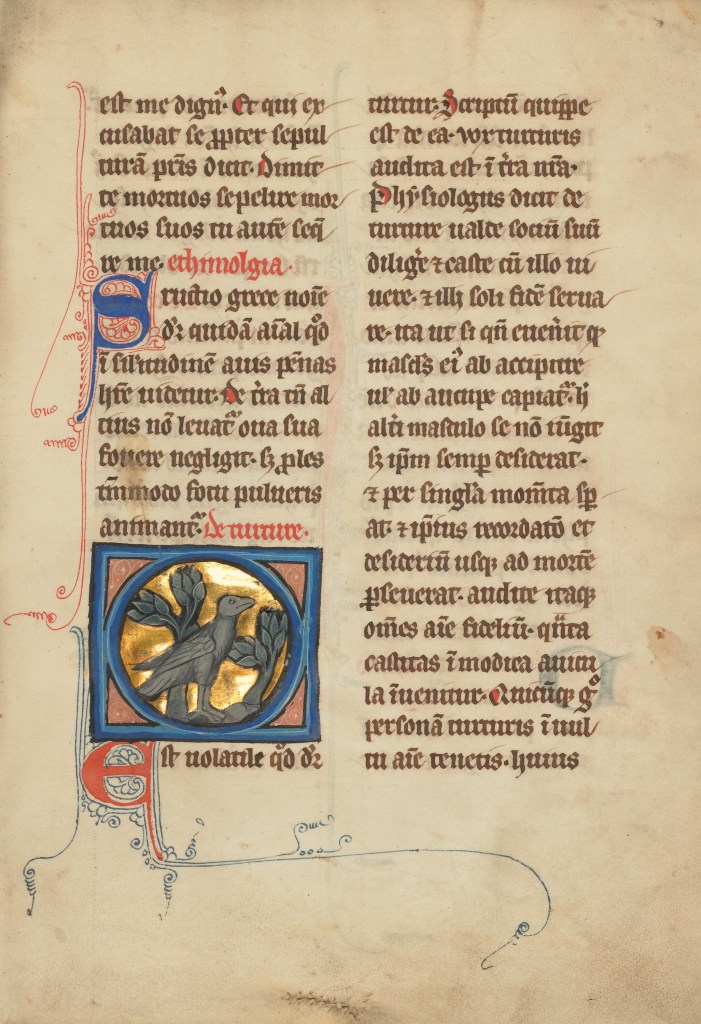 est me dignꝰ. Et qui ex
cusabat se ꝓpter sepul
turā pr̄is dicit. Dimit
te mortuos sepelire mor
tuos suos tu autē seq̄
re me. ethimolgia.
Structio grece noīe
dr̄ quidā aīal qd̓
ī sił'itudinē auis pēnas
hr̄e uidetur. De tr̄a tn̄ al
cius nō leuatᷣ oua sua
fouere negligit. sꝫ ꝓles
tm̄modo fotu pulueris
animantᷣ. De turture.
Est uolatile qd̓ dr̄
turtur. Scriptū quippe
est de ea. vox turturis
audita est ī tr̄a nr̄a.
Phẏsiologus dicit de
turture ualde sociū suū
dilig̓e ⁊ caste cū illo ui
uere. ⁊ illi soli fidē serua
re. ita ut si qn̄ euen̓it qꝫ
mascl̓s ei ab accipitre
ul̓ ab aucupe capiatᷣ. h̓
alt̓i masculo se nō iūgit
sꝫ ip̄m semꝑ desiderat.
⁊ per singl̓a mom̄ta sꝑ
at. ⁊ ip̄ius recordatō et
desideriū usqꝫ ad mortē
ꝑseuerat. audite itaqꝫ
om̄es aīe fideliū. qn̄ta
castitas ī modica auicu
la īuenitur. Quicūqꝫ g̊
personā turturis ī uul
tu aīe tenetis. huius